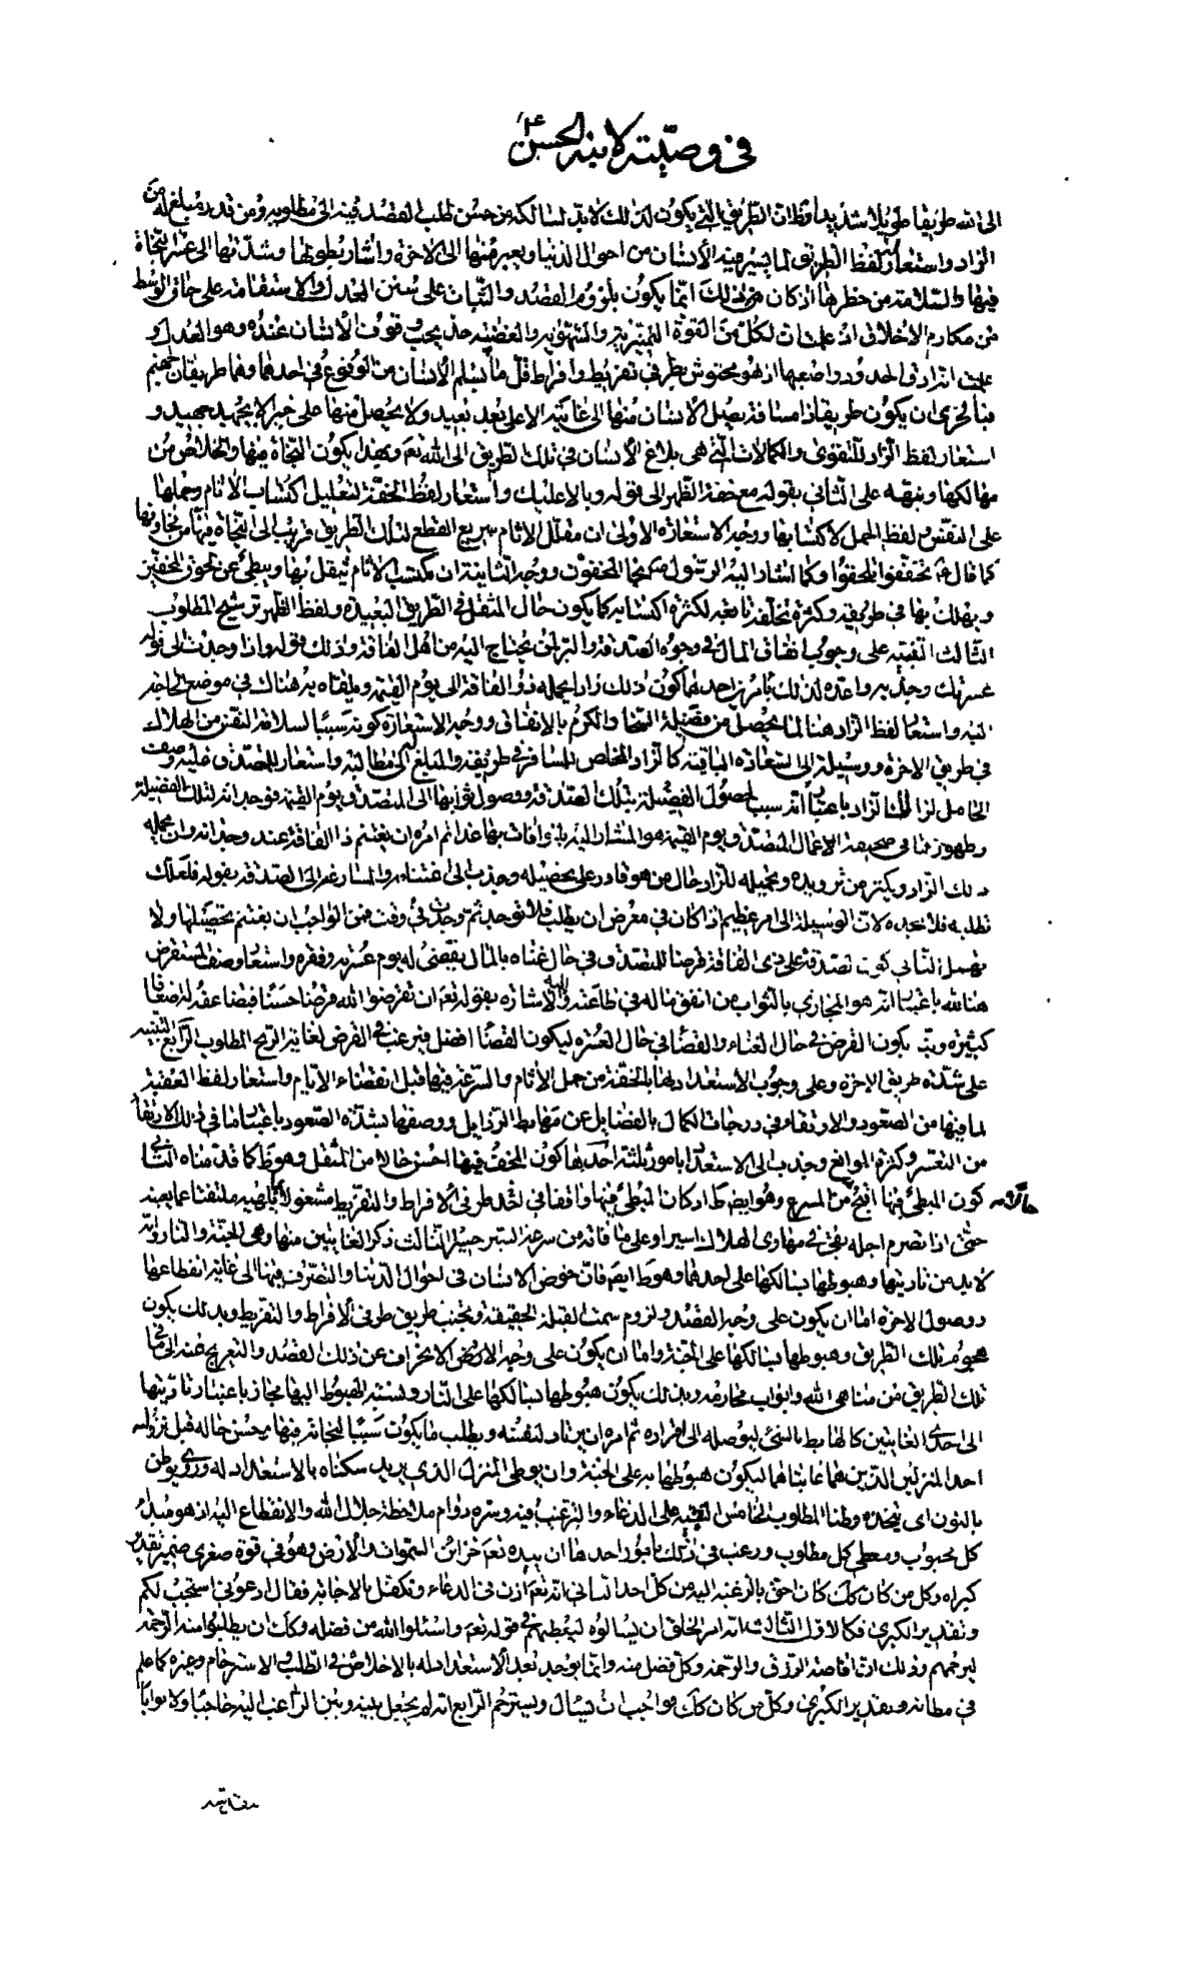 في وصيّته لابنه الحسن ع
الى الله طريقا طويلا شديدا وظاهر ان الطريق التى يكون كذلك لابد لسالكه من حسن طلب القصد فيه الى مطلوبه ومن قدر مبلغ له من
الزاد واستعار لفظ الطريق لما يسير فيه الانسان من احوال الدنيا ويعبر منها الى الاخرة واشار بطولها وشدّتها الى عسر النجاة
فيها والسلامة من خطرها اذ كان ذلك انما يكون بلزوم القصد والثبات على سنن العدل والاستقامة على حاق الوسط
من مكارم الاخلاق اذ علمت ان لكل من القوة التميزية والشهوية والغضبية حد يجب وقوف الانسان عنده وهو العدل و
علمت انذار ذوى الحدود ومواضعها اذ هو محتوش بطرفى تفريط وافراط قل ما يسلم الانسان من الوقوع فى احدهما وهما طريقا جهنم
فبالحرى ان يكون طريقا ذا مسافة يصل الانسان منها الى غايته الا على بعد بعيد ولا يحصل منها على خير الا بجهد جهيد و
استعار لفظ الزاد للتقوى والكمالات التى هى بلاغ الانسان فى تلك الطريق الى الله تعم وبهذا يكون النجاة منها والخلاص من
مهالكها ونبّهه على الثانى بقوله مع خفة الظهر الى قوله وبالا عليك واستعار لفظ الخفة لتقليل اكتساب الاثام وحملها
على النفس ولفظ الحمل لاكتسابها ووجه الاستعارة الاولى ان مقلل الاثام سريع القطع لتلك الطريق قريب الى النجاة فيها من مخاوفها
كما قال ع تخففوا تلحقوا وكما اشار اليه الرسول ص نجا المخفون ووجه الثانية ان مكتسب الاثام يثقل بها ويبطئ عن لحوق المخفين
ويهلك بها فى طريقه وكثرة تخلفه تابعة لكثرة اكتسابه كما يكون حال المثقل فى الطريق البعيدة ولفظ الظهر ترشيح المطلوب
الثالث التنبيه على وجوب انفاق المال فى وجوه الصدقة والبر لمن يحتاج اليه من اهل الفاقة وذلك قوله واذا وجدت الى قوله
عسرتك وجذبه واعده لذلك بامرين احدهما كون ذلك زادا يحمله ذو الفاقة الى يوم القيمة ويلقاه به هناك فى موضع الحاجة
اليه واستعار لفظ الزاد هنا لما يحصل من فضيلة السخا والكرم بالانفاق ووجه الاستعارة كونه سببا لسلامة النفس من الهلاك
فى طريق الاخرة ووسيلة الى السعادة الباقية كالزاد المخلص للمسافر فى طريقه والمبلغ له الى مطالبه واستعار للمتصدق عليه وصف
الحامل لذلك الزاد باعتبار انه سبب لحصول الفضيلة بتلك الصدقة ووصول ثوابها الى المتصدق يوم القيمة فوجدانه لتلك الفضيلة
وظهورها فى صحيفة الاعمال للمتصدق يوم القيمة هو المشار اليه بالموافات بها غدا ثم امره ان يغتنم ذا الفاقة عند وجدانه وان يحمله
ذلك الزاد ويكثر من تزويده وتحميله للزاد حال من هو قادر على تحصيله وجذب الى اغتنامه والمسارعة الى الصدقة بقوله فلعلك
تطلبه فلا تجده لان الوسيلة الى امر عظيم اذا كان فى معرض ان يطلب فلا توجد ثم وجدت فى وقت فمن الواجب ان يغتنم تحصيلها ولا
يهمل الثانى كون صدقته على ذى الفاقة قرضا للمتصدق فى حال غناه بالمال يقضى له يوم عسرته وفقره واستعار وصف المستقرض
هنا لله باعتبار انه هو المجازى بالثواب من انفق ماله فى طاعته واليه الاشارة بقوله تعم ان تقرضوا الله قرضا حسنا فيضاعفه له اضعافا
كثيرة وبتّه بكون القرض فى حال الغناء والقضا فى حال العسرة ليكون القضا افضل فيرغب فى القرض لغاية الربح المطلوب الرابع التنبيه
على شدة طريق الاخرة وعلى وجوب الاستعداد لها بالخفة من حمل الاثام والسرعة فيها قبل انقضاء الايام واستعار لفظ العقبة
لما فيها من الصعود والارتقاء فى درجات الكمال بالفضايل عن مهابط الرذايل ووصفها بشدة الصعود باعتبار ما فى ذلك الارتقا
من التعسر وكثرة الموانع وجذب الى الاستعداد بامور ثلثة احدها كون المخف فيها احسن حالا من المثقل وهو ظ كما قدمناه الثانى
كون المبطئ فيها اقبح من المسرع وهو ايضا ظ اذ كان المبطئ فيها واقفا فى احد طرفى الافراط والتفريط مشغولا بما يلهيه ملتفتا عما يعينه
حتى اذا تصرم اجله بقى فى مهاوى الهلاك اسيرا وعلى ما فاته من سرعة السير حسيرا الثالث ذكر الغايتين منها وهى الجنة والنار وانه
لابد من تاديتها وهبوطها بسالكها على احدهما وهو ظ ايض فان خوض الانسان فى احوال الدنيا والتصرف فيها الى غاية انقطاعها
ووصول الاخرة اما ان يكون على وجه القصد ولزوم سمت القبلة الحقيقة وتجنب طريق طرفى الافراط والتفريط وبذلك يكون
هجوم تلك الطريق وهبوطها بسالكها على الجنة واما ان يكون على وجه الاعراض والانحراف عن ذلك القصد والتعريج عنه الى ما فى
تلك الطريق من مناهى الله وابواب محارمه وبذلك يكون هبوطها بسالكها على النار ونسبة الهبوط اليها مجاز باعتبار تاديتها
الى احدى الغايتين كالهابط بالشئ ليوصله الى قراره ثم امره ان يرتاد لنفسه ويطلب ما يكون سببا لنجاته فيها ويحسن حاله قبل نزوله
احد المنزلين الذين هما غايتاهما ليكون هبوطها به على الجنة وان يوطى المنزل الذى يريد سكناه بالاستعداد له وروى يوطن
بالنون اى يتخذه وطنا المطلوب الخامس التنبيه على الدعاء والترغيب فيه وسره دوام ملاحظة جلال الله والانقطاع اليه اذ هو مبدء
كل محبوب ومعطى كل مطلوب ورغب فى ذلك بامور احدها ان بيده تعم خزائن السموات والارض وهو فى قوة صغرى ضمير تقدير
كبراه وكل من كان كك كان احق بالرغبة اليه من كل احد الثانى انه تعم اذن فى الدعاء وتكفل بالاجابة فقال ادعونى استجب لكم
وتقدير الكبرى فكالاول الثالث انه امر الخلق ان يسالوه ليعطيهم فى قوله تعم واسئلوا الله من فضله وكك ان يطلبوا منه الرحمة
ليرحمهم وذلك ان افاضة الرزق والرحمة وكل فضل منه وانما يوجد بعد الاستعداد له بالاخلاص فى الطلب والاسترحام وغيره كما علم
فى مظانه وتقدير الكبرى وكل من كان كك فواجب ان يسال ويسترحم الرابع انه لم يجعل بينه وبين الراغب اليه حاجبا ولا بوابا